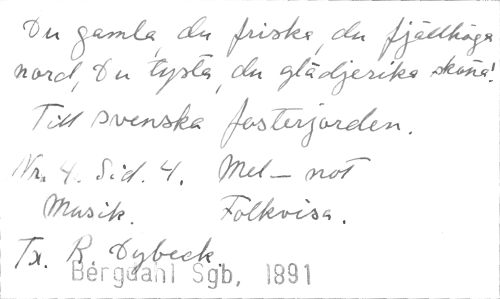 Du gamla, du friska, du fjällhöga
nord, Du tysta, du glädjerika sköna!
Till svenska fosterjorden.
Nr. 4. Sid. 4. Mel - not
Musik. Folkvisa.
Tx. R. Dybeck.
Bergdahl Sgb, 1891